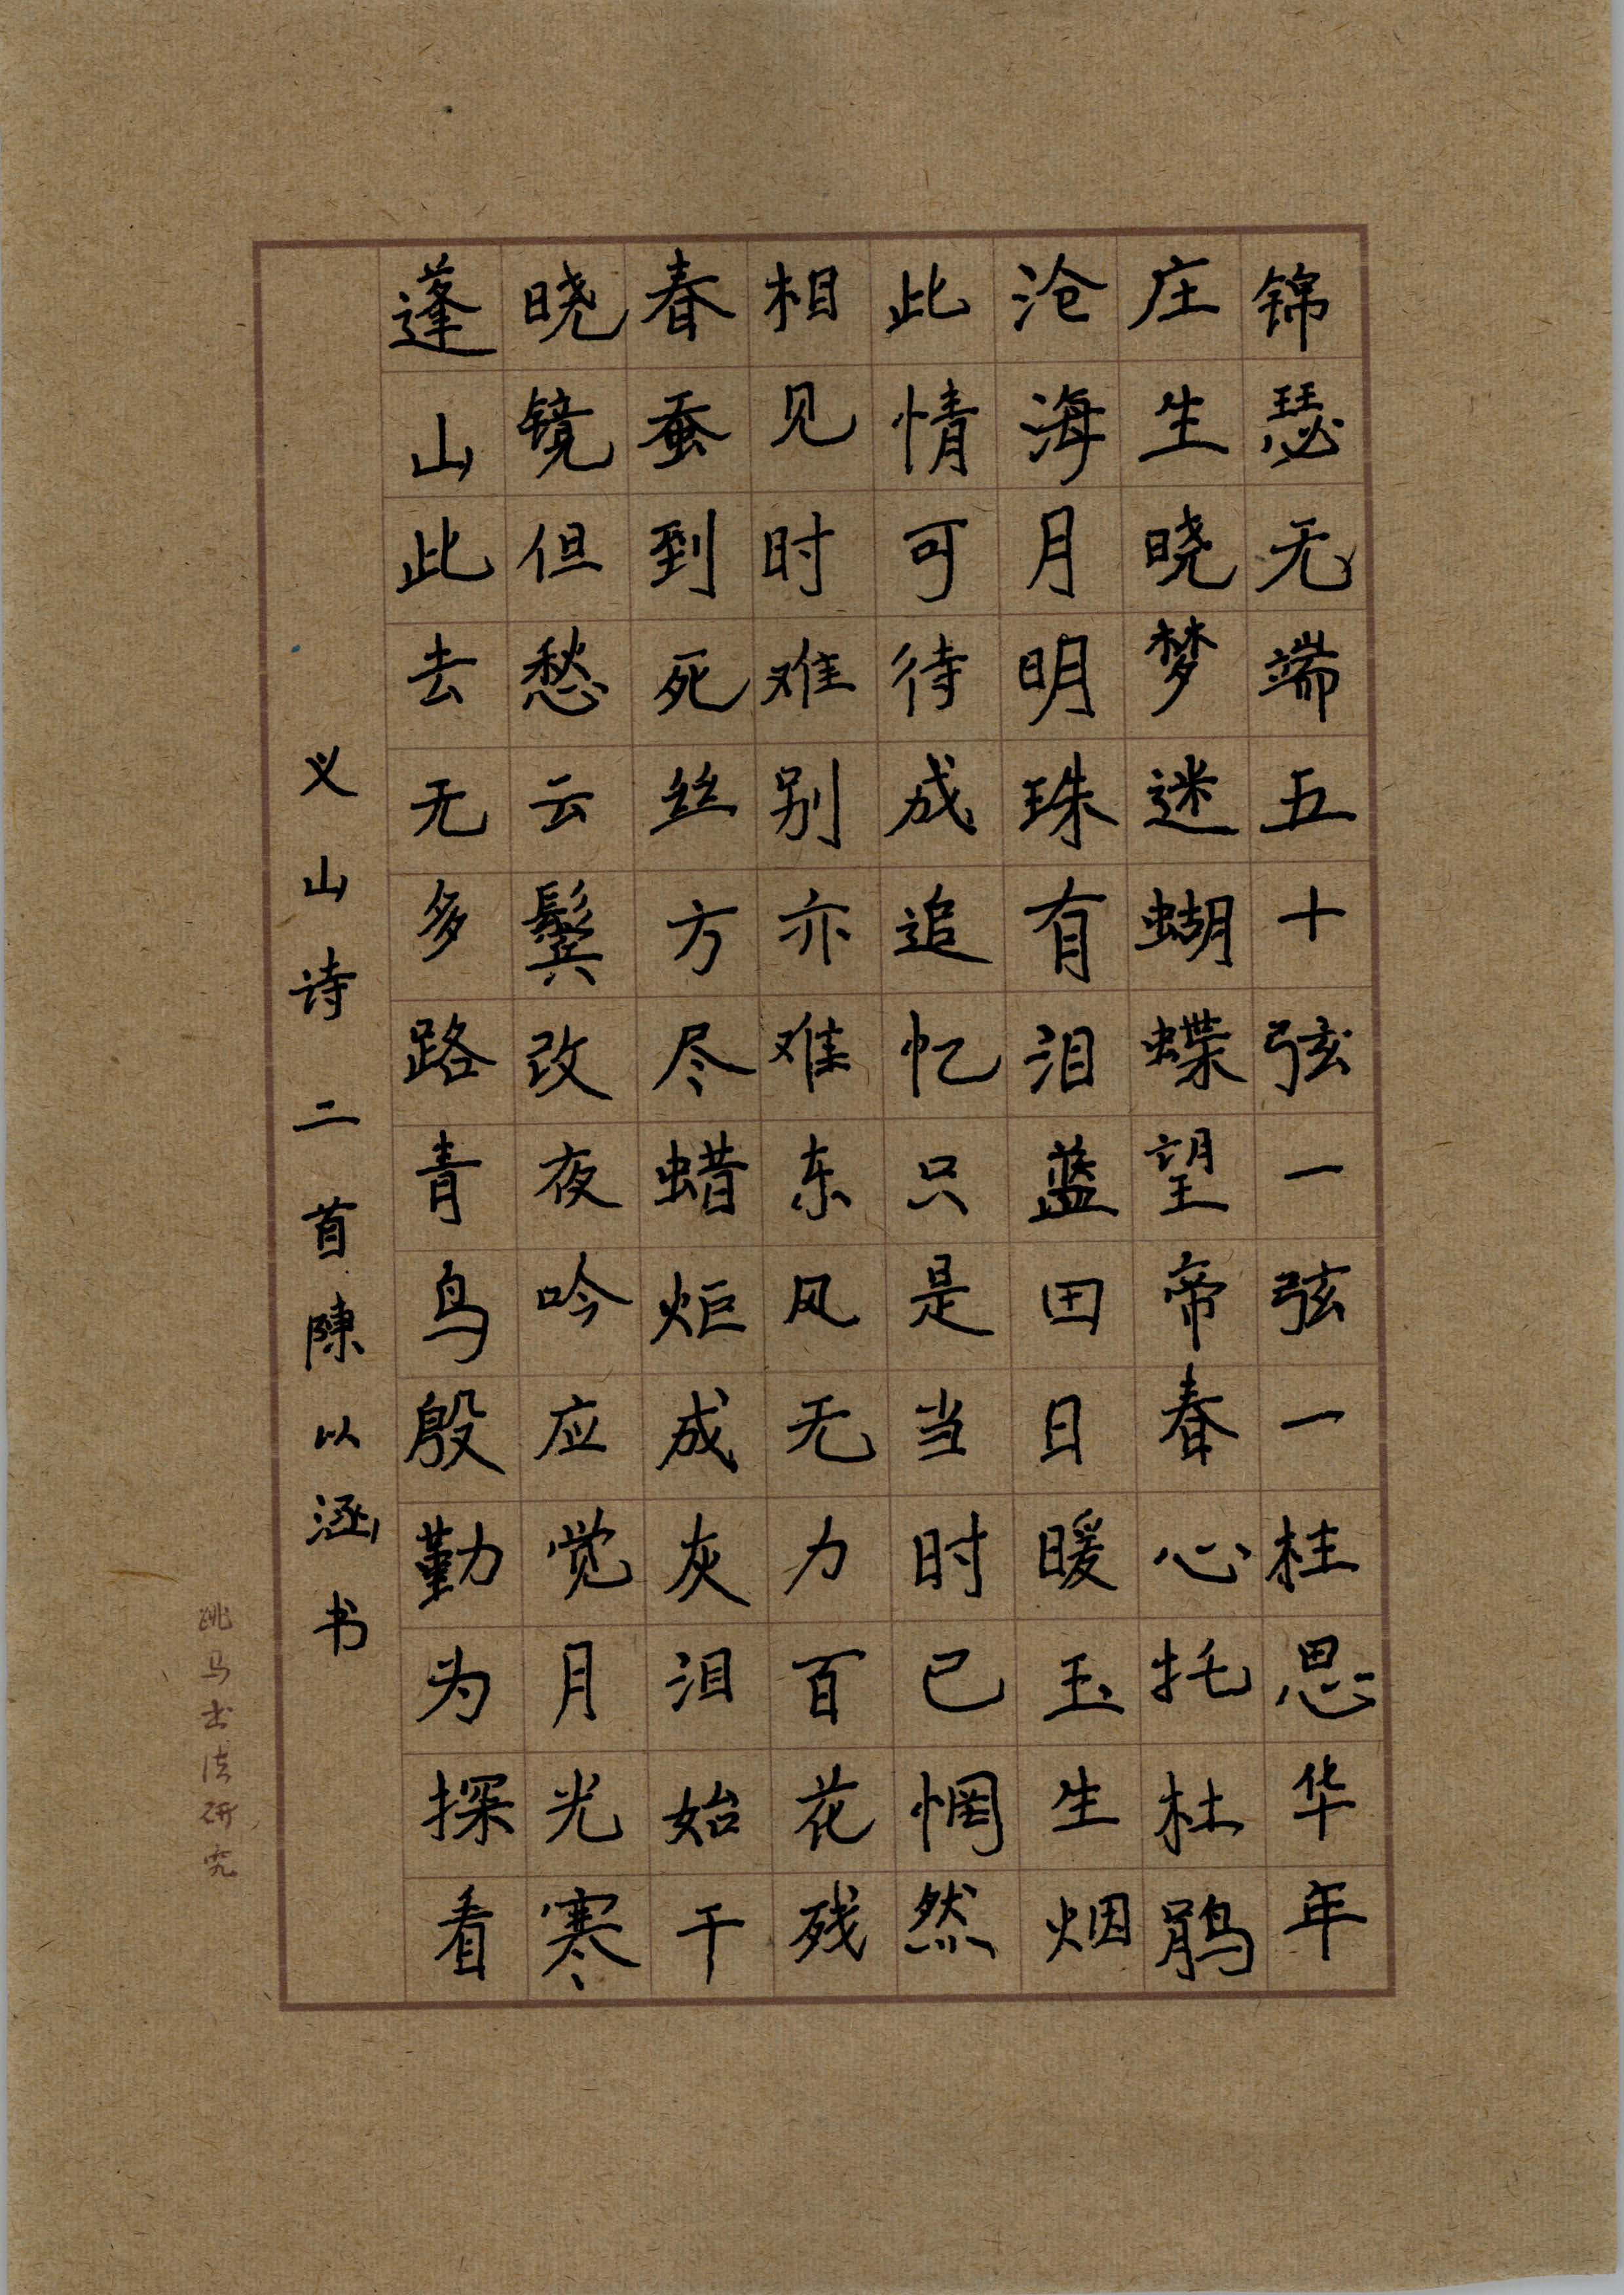 锦瑟无端五十弦一弦一桂思华年
庄生晓梦迷蝴蝶望帝春心托杜鹃
沧海月明珠有泪蓝田日暖玉生烟
此情可待成追忆只是当时已惘然
相见时难别亦难东风无力百花残
春蚕到死丝方尽蜡炬成灰泪始干
晓镜但愁云鬓改夜吟应觉月光寒
蓬山此去无多路青鸟殷勤为探看
义山诗二首陳以涵书
跳马书法研究